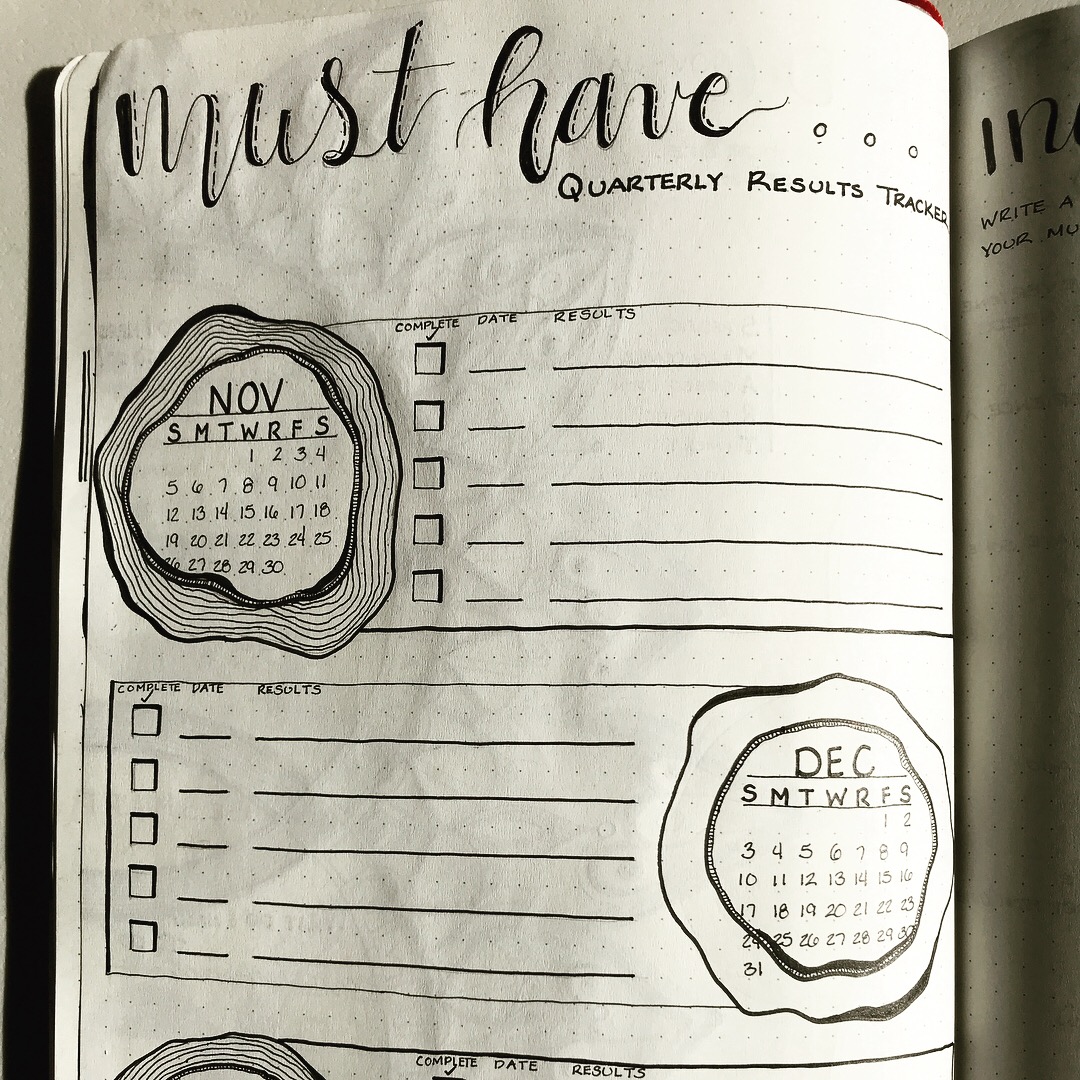 must have...
QUARTERLY RESULTS TRACKER
COMPLETE DATE RESULTS
NOV
S M T W R F S
1 2 3 4
5 6 7 8 9 10 11
12 13 14 15 16 17 18
19 20 21 22 23 24 25
26 27 28 29 30
COMPLETE DATE RESULTS
DEC
S M T W R F S
1 2
3 4 5 6 7 8 9
10 11 12 13 14 15 16
17 18 19 20 21 22 23
24 25 26 27 28 29 30
31
COMPLETE DATE RESULTS
WRITE A
YOUR